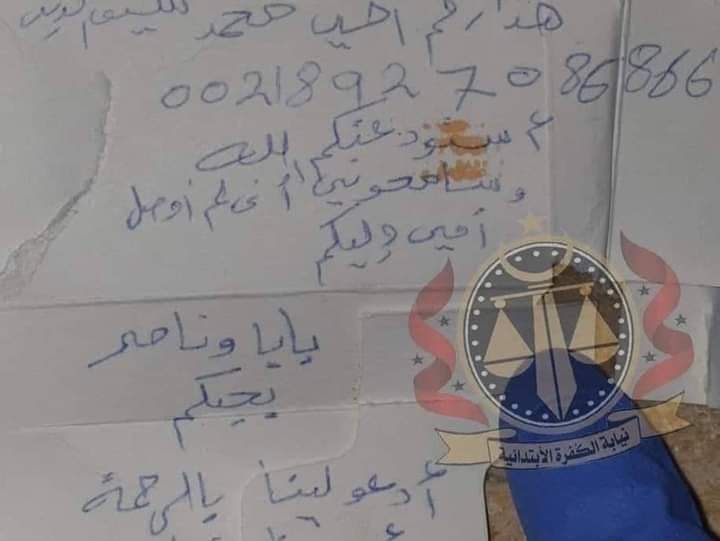 هذا رقم اخي محمد
00218927086866
ستودعتكم الله
وسامحوني أني لم اوصل
أمي وليكم
بابا وناصر
يحبكم
أدعو لينا بالرحمة
نيابة الكفرة الأبتدائية